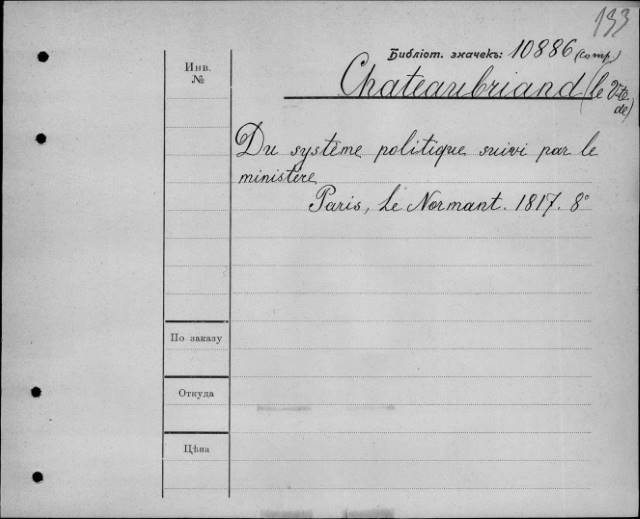 133
Библіот. значекъ: 10886 (comp.)
Инв.
№
Chateaubriand (le Vte
de)
Du système politique suivi par le
ministère
Paris, Le Normant. 1817. 8°
По заказу
Откуда
Цѣна